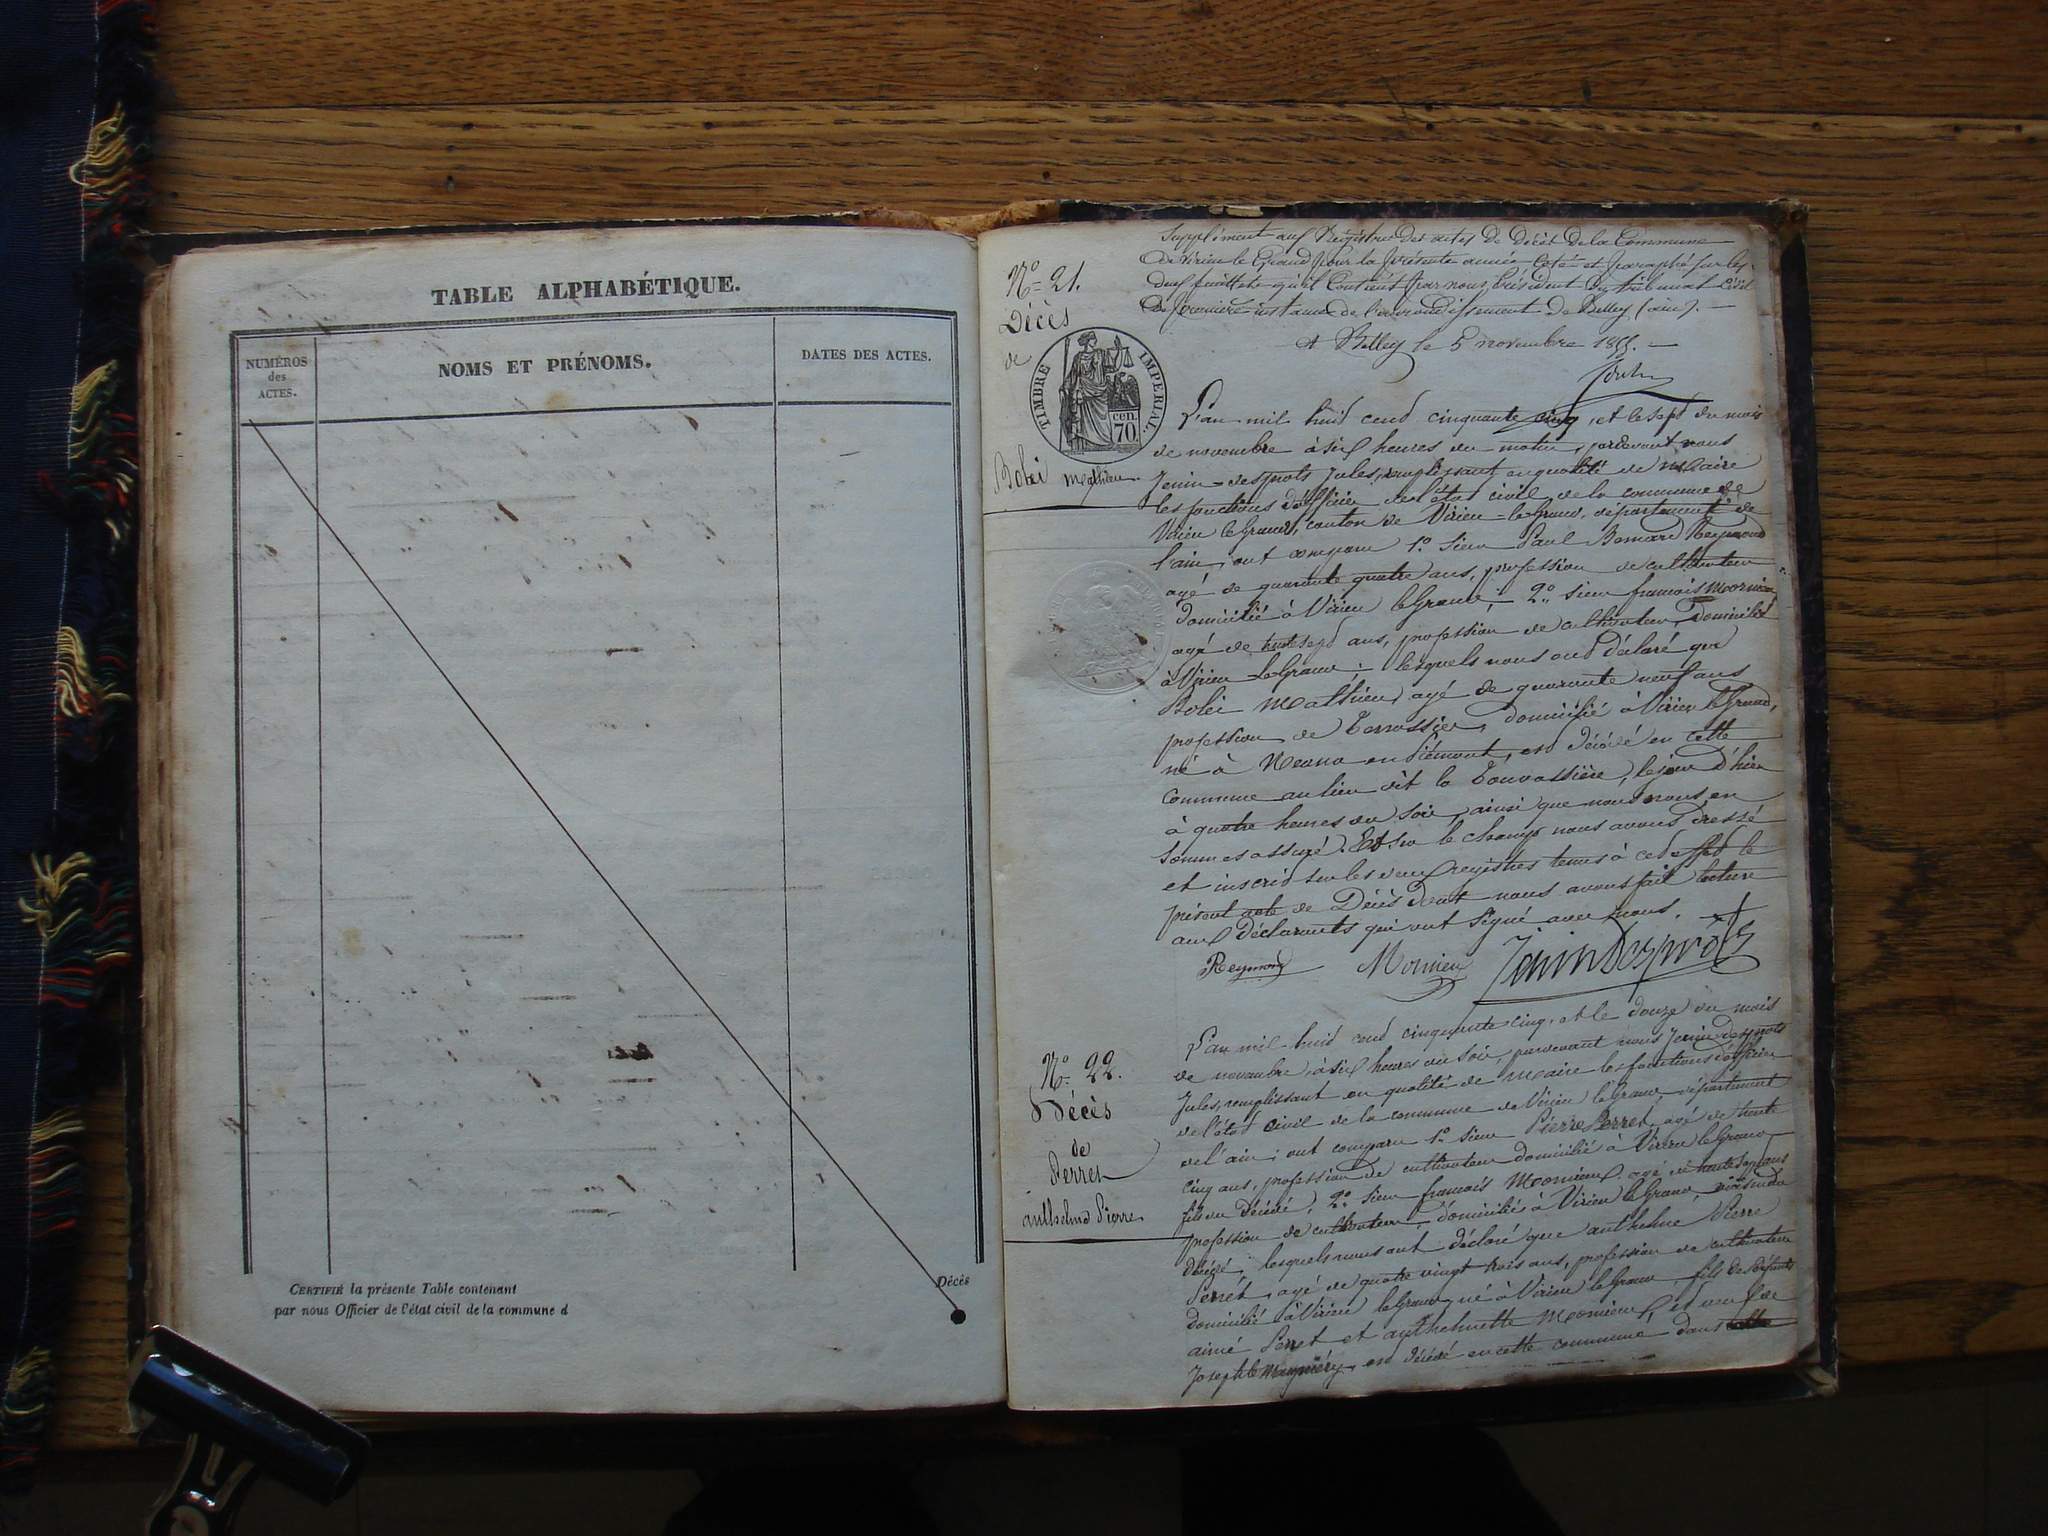 TABLE ALPHABÉTIQUE.
NUMÉROS
des
ACTES.
NOMS ET PRÉNOMS.
DATES DES ACTES.
CERTIFIÉ la présente Table contenant
Décès
par nous Officier de l'état civil de la commune d
Supplément aux Registres des actes de décès de la Commune
de Virieu le Grand pour la présente année Coté et paraphé par les
deux feuillets qu'il Contient par nous Président du tribunal Civil
de première instance de l'arrondissement de Belley (ain). —
A Belley le 5 novembre 1855. —
No. 21.
Décès
de
TIMBRE IMPERIAL.
cen.
70.
Bolei Mathieu.
L'an mil huit cent cinquante cinq, et le sept du mois
de novembre à six heures du matin, pardevant nous
Jenin-desprots Jules, remplissant en qualité de Maire
les fonctions d'officier de l'état civil, de la commune de
Virieu le Grand, canton de Virieu-le-Grand, département de
l'ain, ont comparu 1o. Sieur Paul Bernard Reymond
agé de quarante quatre ans, profession de cultivateur
domicilié à Virieu le Grand; 2o. sieur françois Mornieu
agé de trente sept ans, profession de cultivateur, domicilié
à Virieu le Grand; lesquels nous ont déclaré que
Bolei Mathieu, agé de quarante neuf ans
profession de Terrassier, domicilié à Virieu le Grand,
né à en Piémont, est décédé en cette
commune au lieu dit la, le jour d'hier
à quatre heures du soir, ainsi que nous nous en
sommes assuré. Et sur le champ nous avons dressé
et inscrit sur les deux registres tenus à cet effet le
présent acte de Décès dont nous avons fait lecture
aux déclarants qui ont signé avec nous.
Reymond Mornieu JeninDesprots
No. 22.
Décès
de
Perret
anthelme Pierre
L'an mil huit cent cinquante cinq, et le douze du mois
de novembre, à six heures du soir, pardevant nous Jenin desprots
Jules, remplissant en qualité de Maire les fonctions d'officier
de l'état civil de la commune de Virieu le Grand, département
de l'ain; ont comparu 1o. sieur Pierre Perret, agé de trente
cinq ans, profession de cultivateur domicilié à Virieu le Grand
fils du décédé, 2o. sieur françois Mornieu, agé de trente sept ans
profession de cultivateur, domicilié à Virieu le Grand, voisin du
décédé; lesquels nous ont déclaré que anthelme Pierre
Perret, agé de quatre vingt trois ans, profession de cultivateur
domicilié à Virieu le Grand, né à Virieu le Grand, fils des défunts
aimé Perret et Mornieu, et veuf de
Josephte, est décédé en cette commune, dans